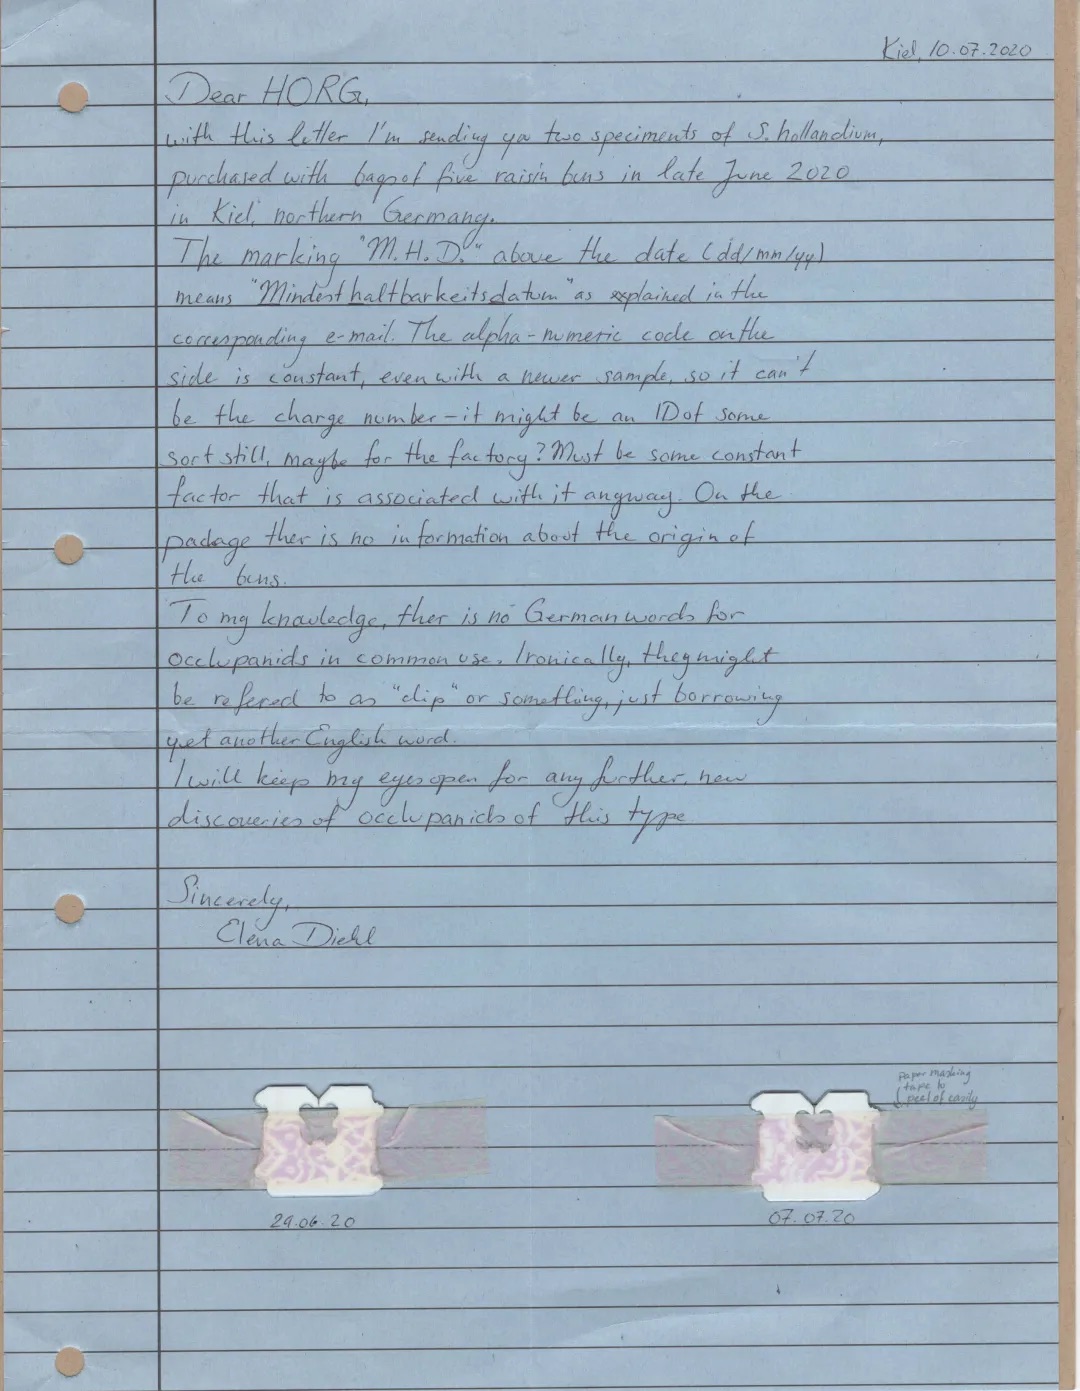 Kiel, 10.07.2020
Dear HORG,
with this letter I'm sending you two speciments of S. hollandium,
purchased with bags of five raisin buns in late June 2020
in Kiel, northern Germany.
The marking "M.H.D." above the date (dd/mm/yy)
means "Mindesthaltbarkeitsdatum" as explained in the
corresponding e-mail. The alpha-numeric code on the
side is constant, even with a newer sample, so it can't
be the charge number - it might be an ID of some
sort still, maybe for the factory? Must be some constant
factor that is associated with it anyway. On the
package ther is no information about the origin of
the buns.
To my knowledge, ther is no German words for
occlupanids in common use. Ironically, they might
be refered to as "clip" or something, just borrowing
yet another English word.
I will keep my eyes open for any further, new
discoveries of occlupanids of this type.
Sincerely,
Elena Diehl
Paper masking
tape to
peal of easily
29.06.20
07.07.20